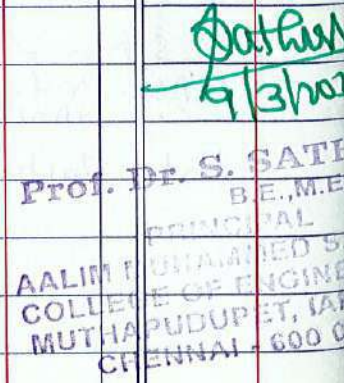 9/3/202
Prof. Dr. S. SATH
B.E.,M.E
PRINCIPAL
AALIM MUHAMMED S
COLLEGE OF ENGINE
MUTHAPUDUPET, IAF
CHENNAI - 600 0